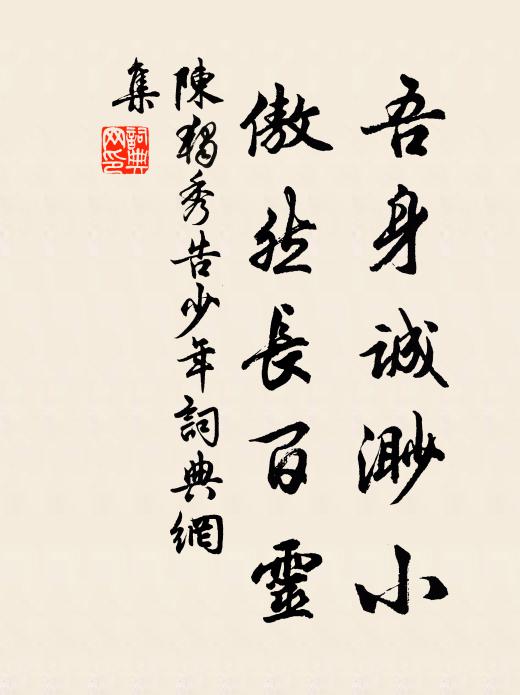 吾身誠渺小
傲然長百靈
陳獨秀告少年詞典網
集
詞典網印